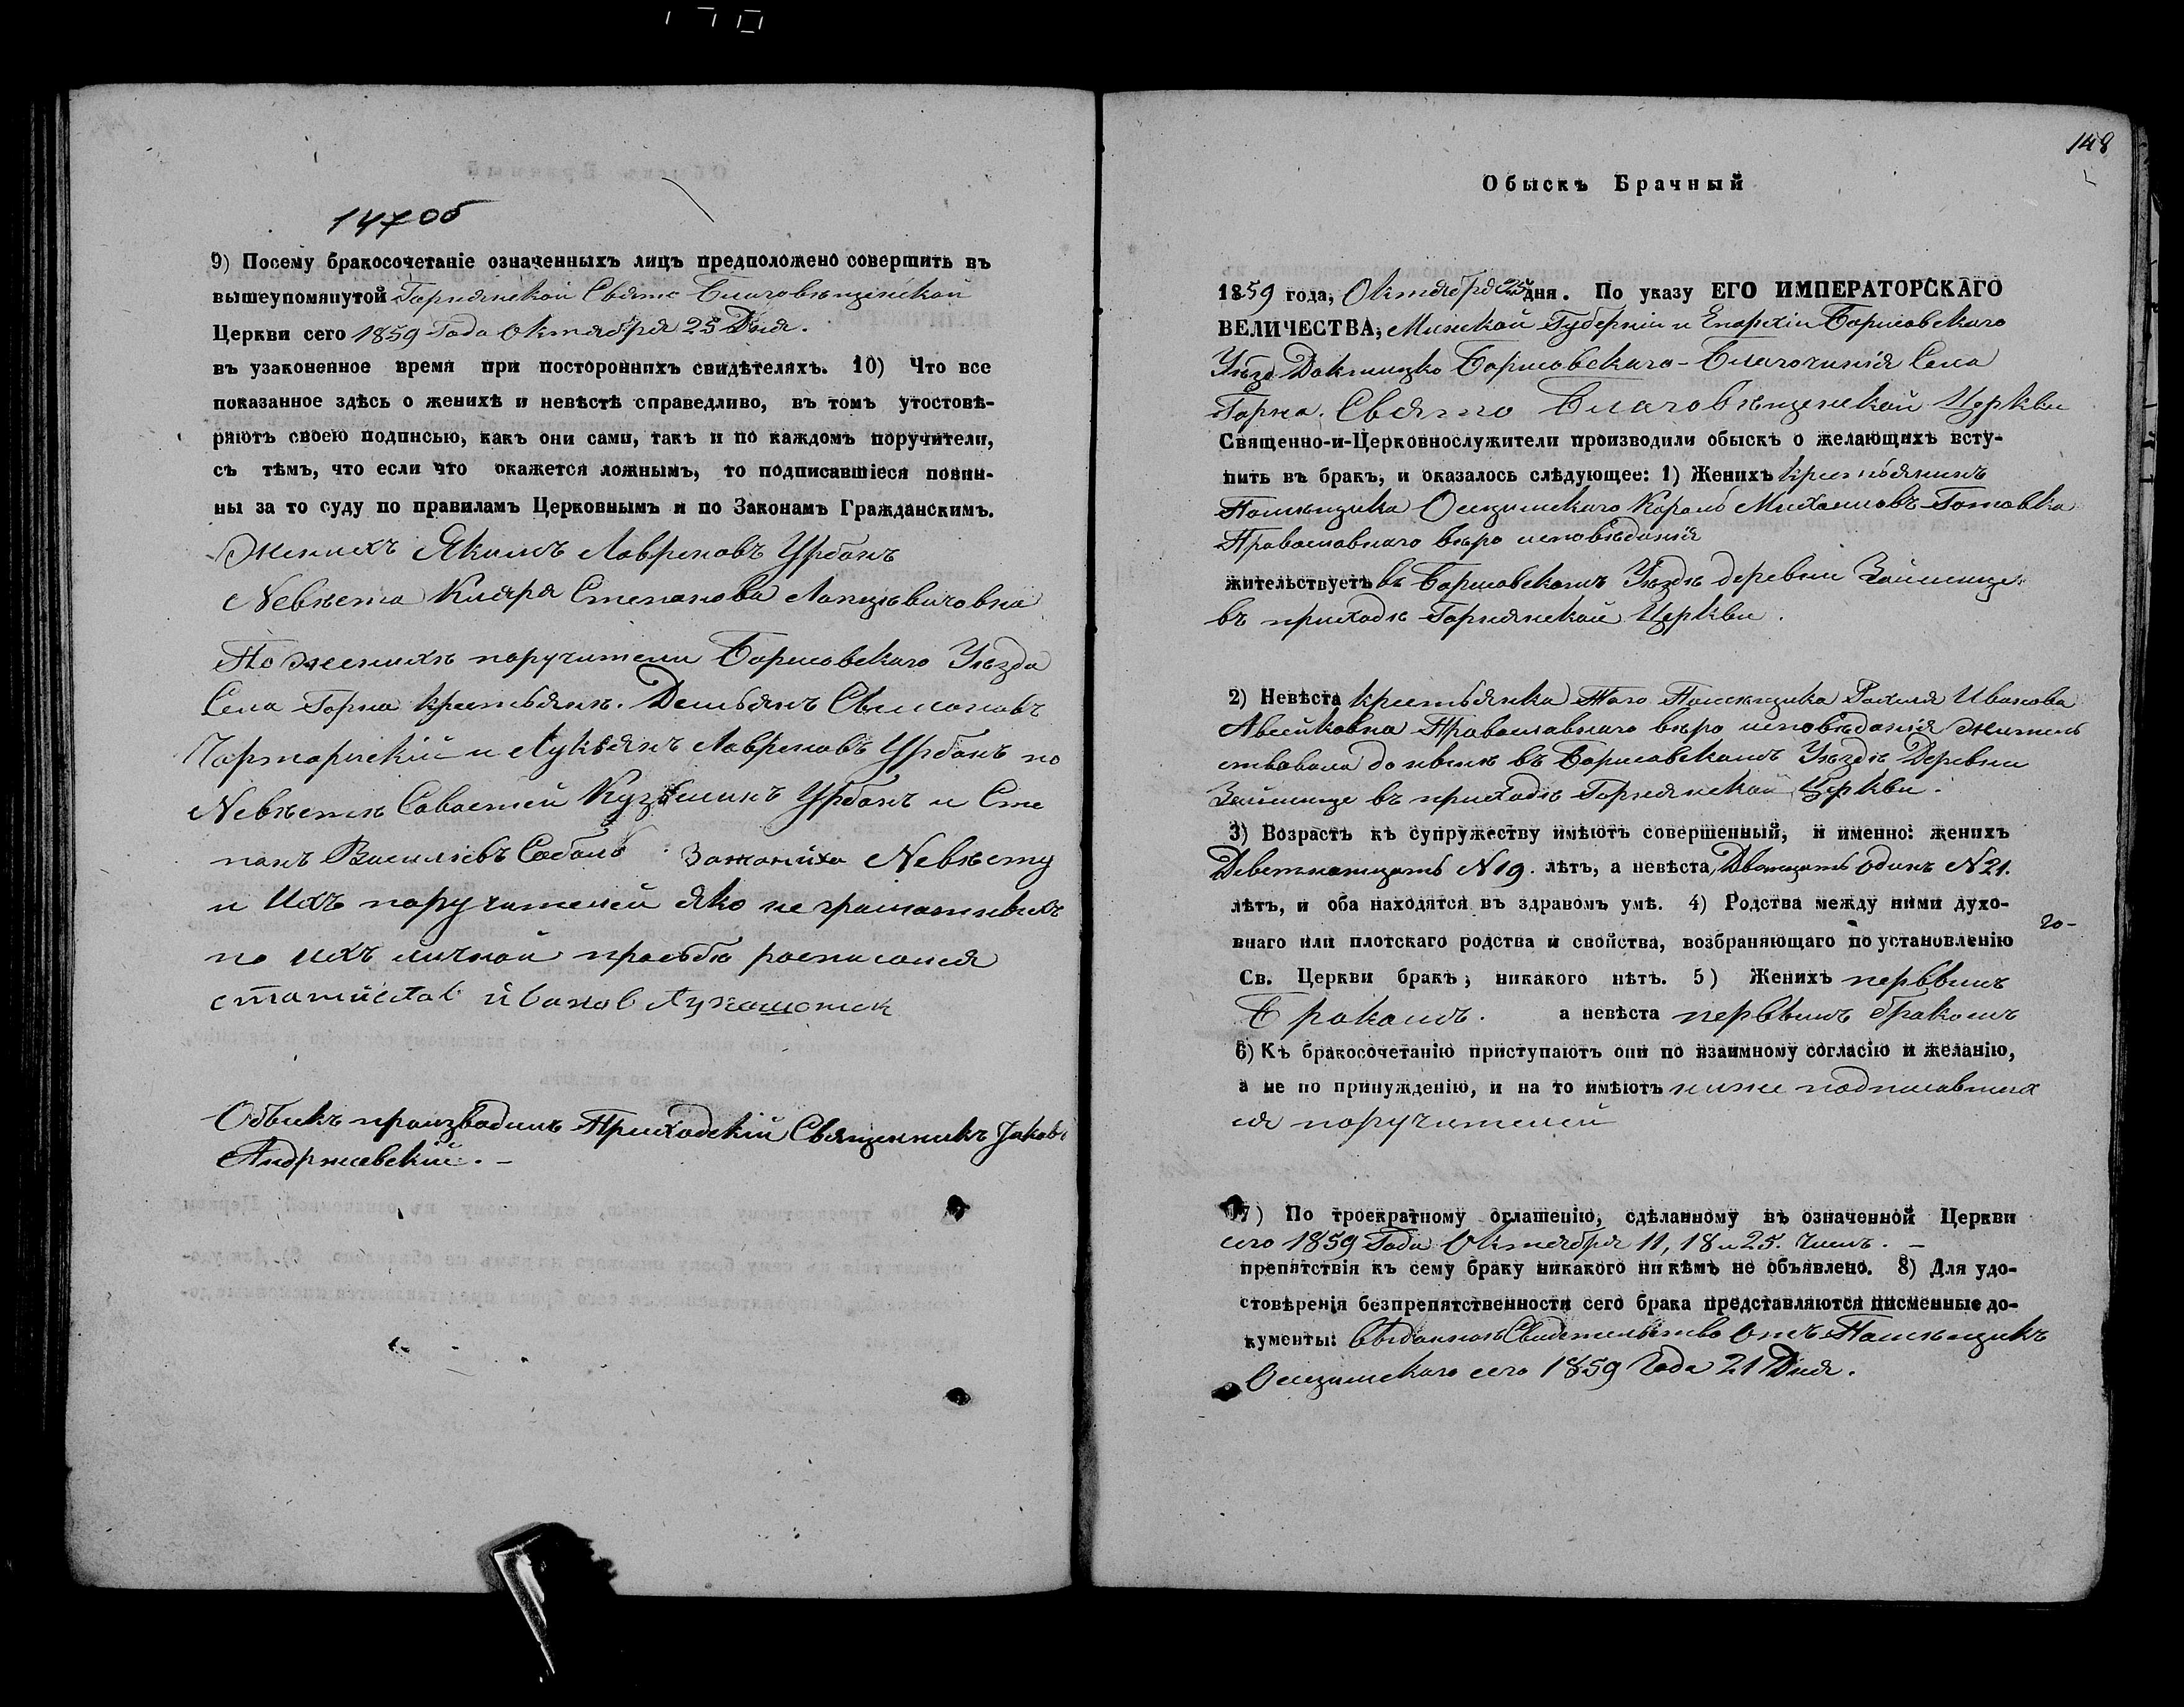 147об
9) Посему бракосочетаніе означенныхъ лицъ предположено совершить въ
вышеупомянутой Горнянской Свято Благовѣщенской
Церкви сего 1859 Года Октября 25 Дня.
въ узаконенное время при постороннихъ свидѣтеляхъ. 10) Что все
показанное здѣсь о женихѣ и невѣстѣ справедливо, въ томъ утостовѣ-
ряютъ своею подписью, какъ они сами, такъ и по каждомъ поручители,
съ тѣмъ, что если что окажется ложнымъ, то подписавшіеся повин-
ны за то суду по правиламъ Церковнымъ и по Законамъ Гражданскимъ.
Женихъ Якимъ Лавреновъ Урбанъ
Невѣста Степанова
По женихѣ поручители Борисовскаго Уѣзда
Села Горна Демьянъ
и Лукьянъ Лавреновъ Урбанъ по
Невѣстѣ Савастей Урбанъ и Сте
панъ Василевъ Соболь Невѣсту
и ихъ поручителей яко неграмотныхъ
по ихъ личной прозьбѣ росписался
Обыскъ производилъ Приходскій Священникъ
Андржеевскій. –
148
Обыскъ Брачный
1859 года, Октября 25 дня. По указу ЕГО ИМПЕРАТОРСКАГО
ВЕЛИЧЕСТВА, Минской Губерніи и Епархіи Борисовскаго
Уѣзда Докшицко Борисовскаго-Благочинія Села
Горна. Свято Благовѣщенской Церкви
Священно-и-Церковнослужители производили обыскъ о желающихъ всту-
пить въ бракъ, и оказалось слѣдующее: 1) Женихъ крестьянинъ
Помѣщика Михаиловъ
Православнаго вѣро исповѣданія
жительствуетъ въ Борисовскомъ Уѣздѣ деревни
въ приходѣ Горнянской Церкви.
2) Невѣста крестьянка Того Помѣщика Иванова
Православнаго вѣро исповѣданія житель
ствовала до нынѣ въ Борисовскомъ Уѣздѣ Деревни
въ приходѣ Горнянской Церкви.
3) Возрастъ къ супружеству имѣютъ совершенный, и именно: женихъ
Деветнатцать N19. лѣтъ, а невѣста, Дватцать одинъ N21.
лѣтъ, и оба находятся въ здравомъ умѣ. 4) Родства между ними духо-
внаго или плотскаго родства и свойства, возбраняющаго по установленію
го-
Св. Церкви бракъ, никакого нѣтъ. 5) Женихъ первымъ
Бракомъ. а невѣста первымъ бракомъ
6) Къ бракосочетанію приступаютъ они по взаимному согласію и желанію,
а не по принужденію, и на то имѣютъ ниже подписавших
ся поручителей
7) По троекратному оглашенію, сдѣланному въ означенной Церкви
сего 1859 Года Октября 11, 18 и 25. Числъ. –
препятствія къ сему браку никакого ни кѣмъ не объявлено. 8) Для удо-
стовѣренія безпрепятственности сего брака представляются писменные до-
кументы: Свидетельство отъ Помѣщикъ
сего 1859 Года 21 Дня.